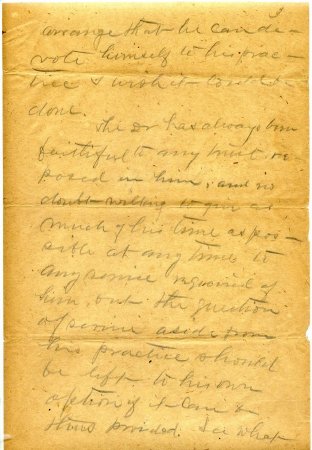 3
arrange that he can de-
vote himself to his prac-
tice I wish it could be
done.
The Dr has always been
faithful to any trust re-
posed in him, and no
doubt willing to give as
much of his time as pos-
sible at any time to
any service required of
him, but the question
of service aside from
his practice should
be left to his own
option if it can be
thus provided. See what